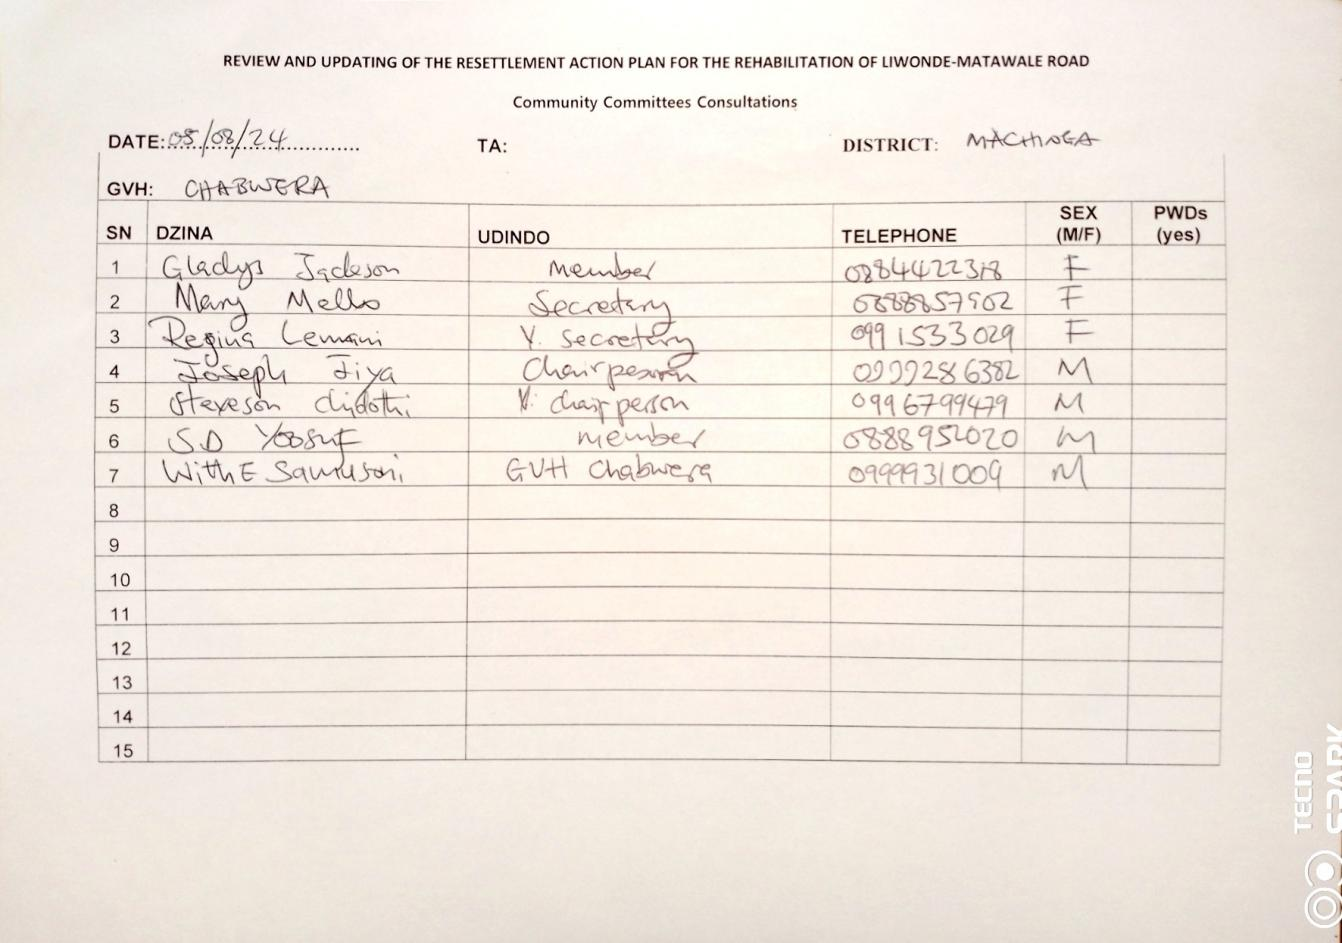 REVIEW AND UPDATING OF THE RESETTLEMENT ACTION PLAN FOR THE REHABILITATION OF LIWONDE-MATAWALE ROAD
Community Committees Consultations
DATE: 05/08/24 TA: DISTRICT: MACHINGA
GVH: CHABWERA
SN DZINA UDINDO TELEPHONE SEX (M/F) PWDs (yes)
1 Gladys Jackson member 0884422318 F
2 Mary Mello Secretary 0888857902 F
3 Regina Lemani V. Secretary 0991533029 F
4 Joseph Jiya Chairperson 0999286382 M
5 Steveson Chidothi V. chairperson 0996799479 M
6 S.D Yoosuf member 0888952020 M
7 WithE Samusoni GVH Chabwera 0999931009 M
8
9
10
11
12
13
14
15
TECNO
SPARK